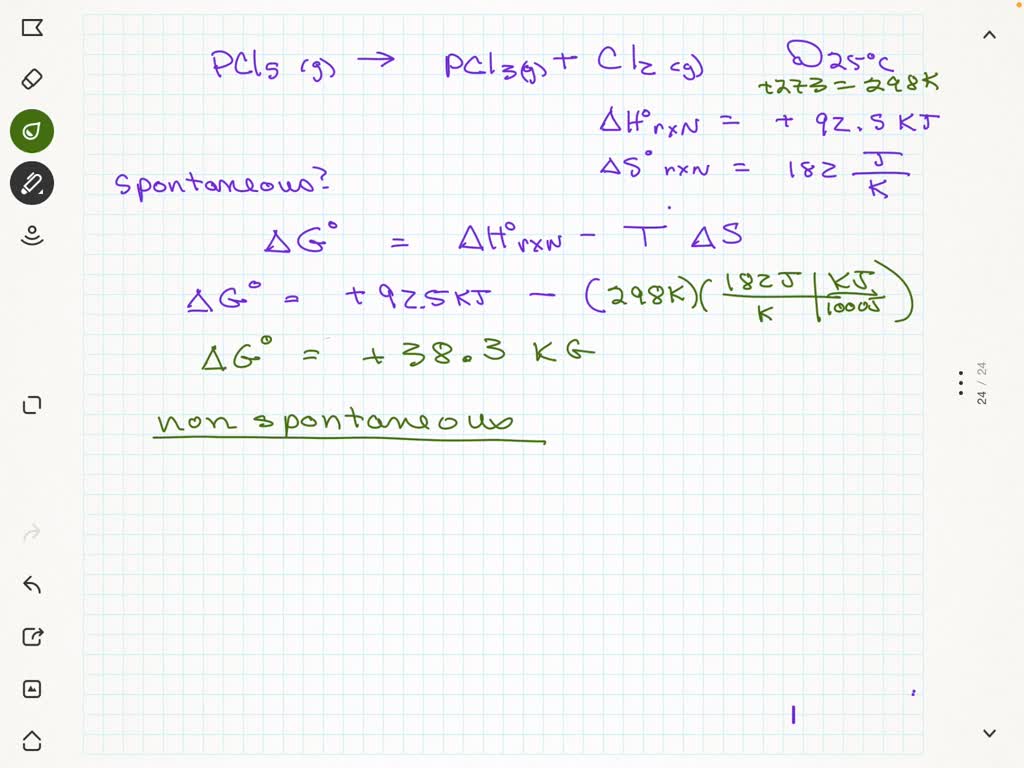 PCl5 (g) → PCl3(g) + Cl2 (g) @25°C
+273 = 298K
ΔH°rxN = + 92.5 KJ
ΔS°rxN = 182 J/K
spontaneous?
ΔG° = ΔH°rxN - T ΔS
ΔG° = +92.5KJ - (298K)(182J/K | KJ/1000J)
ΔG° = +38.3 KG
non spontaneous
24 / 24